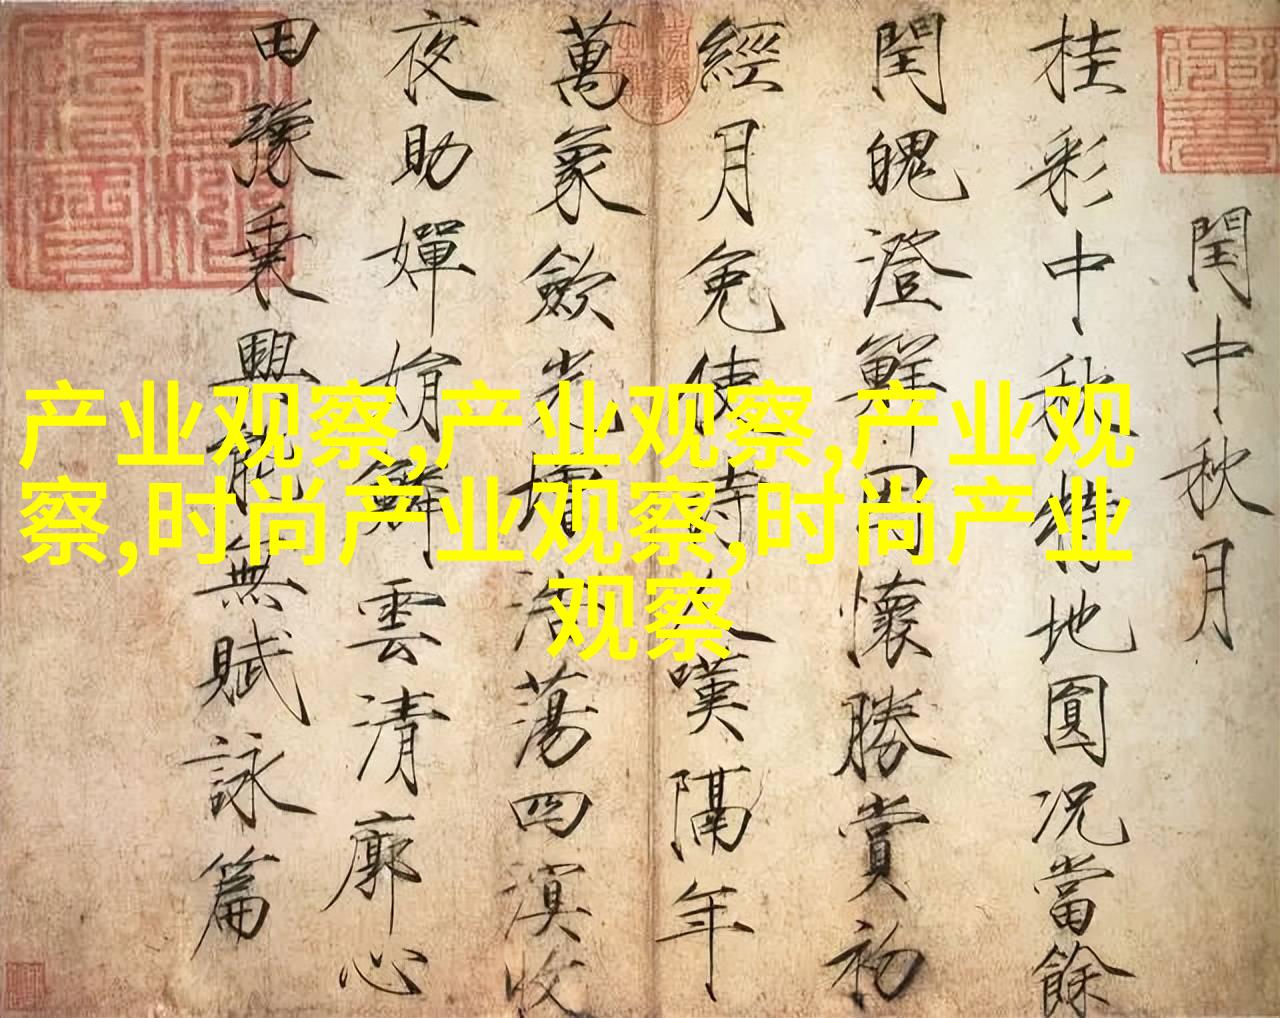 产业观察,产业观察,产业观
察,时尚产业观察,时尚产业
观察
閏中秋月
桂彩中秋特地圓況當餘
閏魄澄鮮因懷勝賞初
經月免使詩人嘆隔年
萬象歛光增浩蕩四溟收
夜助嬋娟鱗雲清廓心
田豫乗興能無賦詠篇